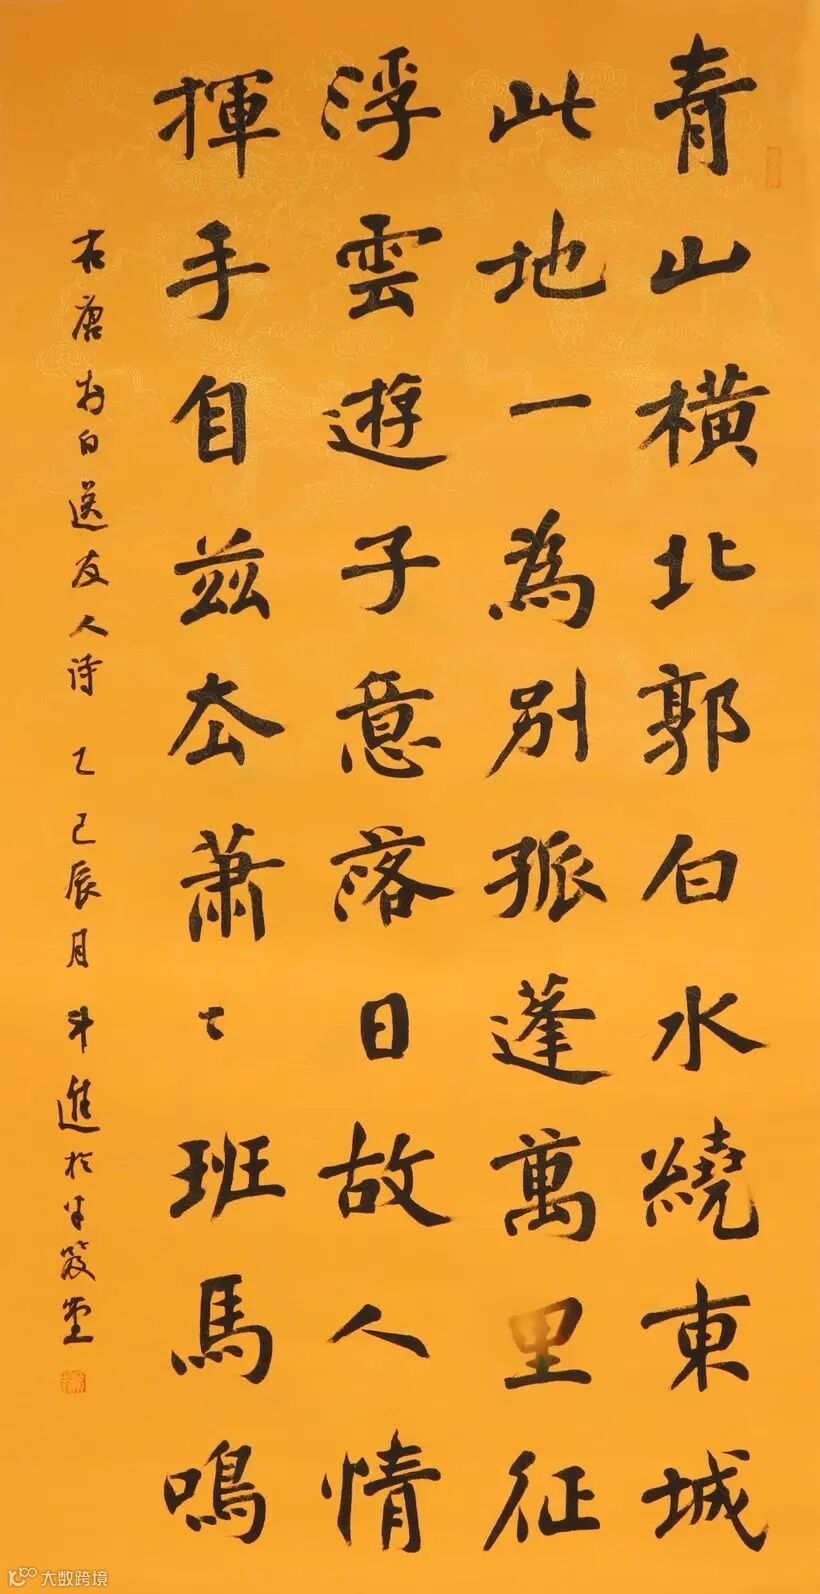 青山橫北郭白水繞東城
此地一為別孤蓬萬里征
浮雲遊子意落日故人情
揮手自茲去蕭〻班馬鳴
右唐李白送友人诗 乙巳辰月 斗進於半笈堂
大数跨境